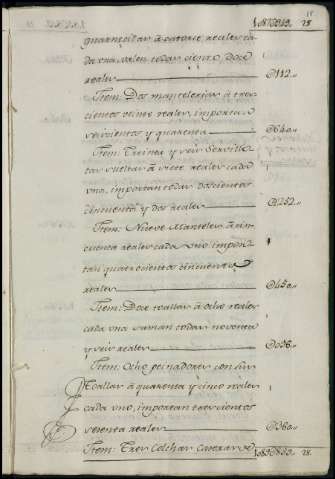 à catorze reales ca
da una, valen todas ciento, doze
reales D112..
Item: Dos mantelerias à tres
cientos veinte reales, importan
seiscientos y quarenta D640..
Item: Treinta y seis Serville
tas sueltas à siete reales cada
uno, importan todas doscientos
cinquenta y dos reales D252..
Item: Nueve Manteles à cin
cuenta reales cada uno impor
tan quatrocientos cinquenta
reales D450..
Item: Doze toallas à ocho reales
cada una suman todas noventa
y seis reales D096..
Item: Ocho peinadores con sus
toallas à quarenta y cinco reales
cada uno, importan trescientos
sesenta reales D360..
Item: Tres Colchas Caseras de 28.